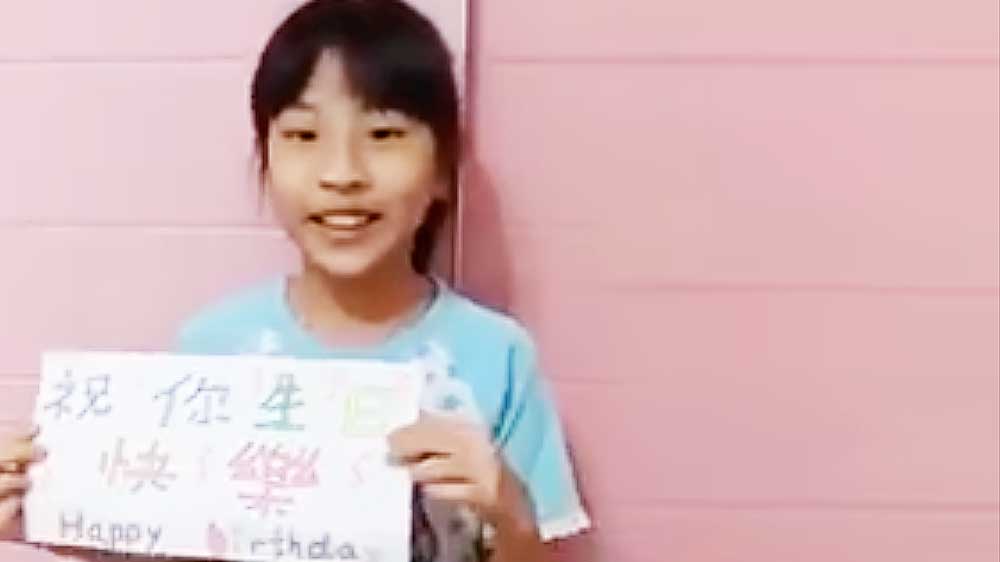 祝你生日
快樂
Happy Birthday